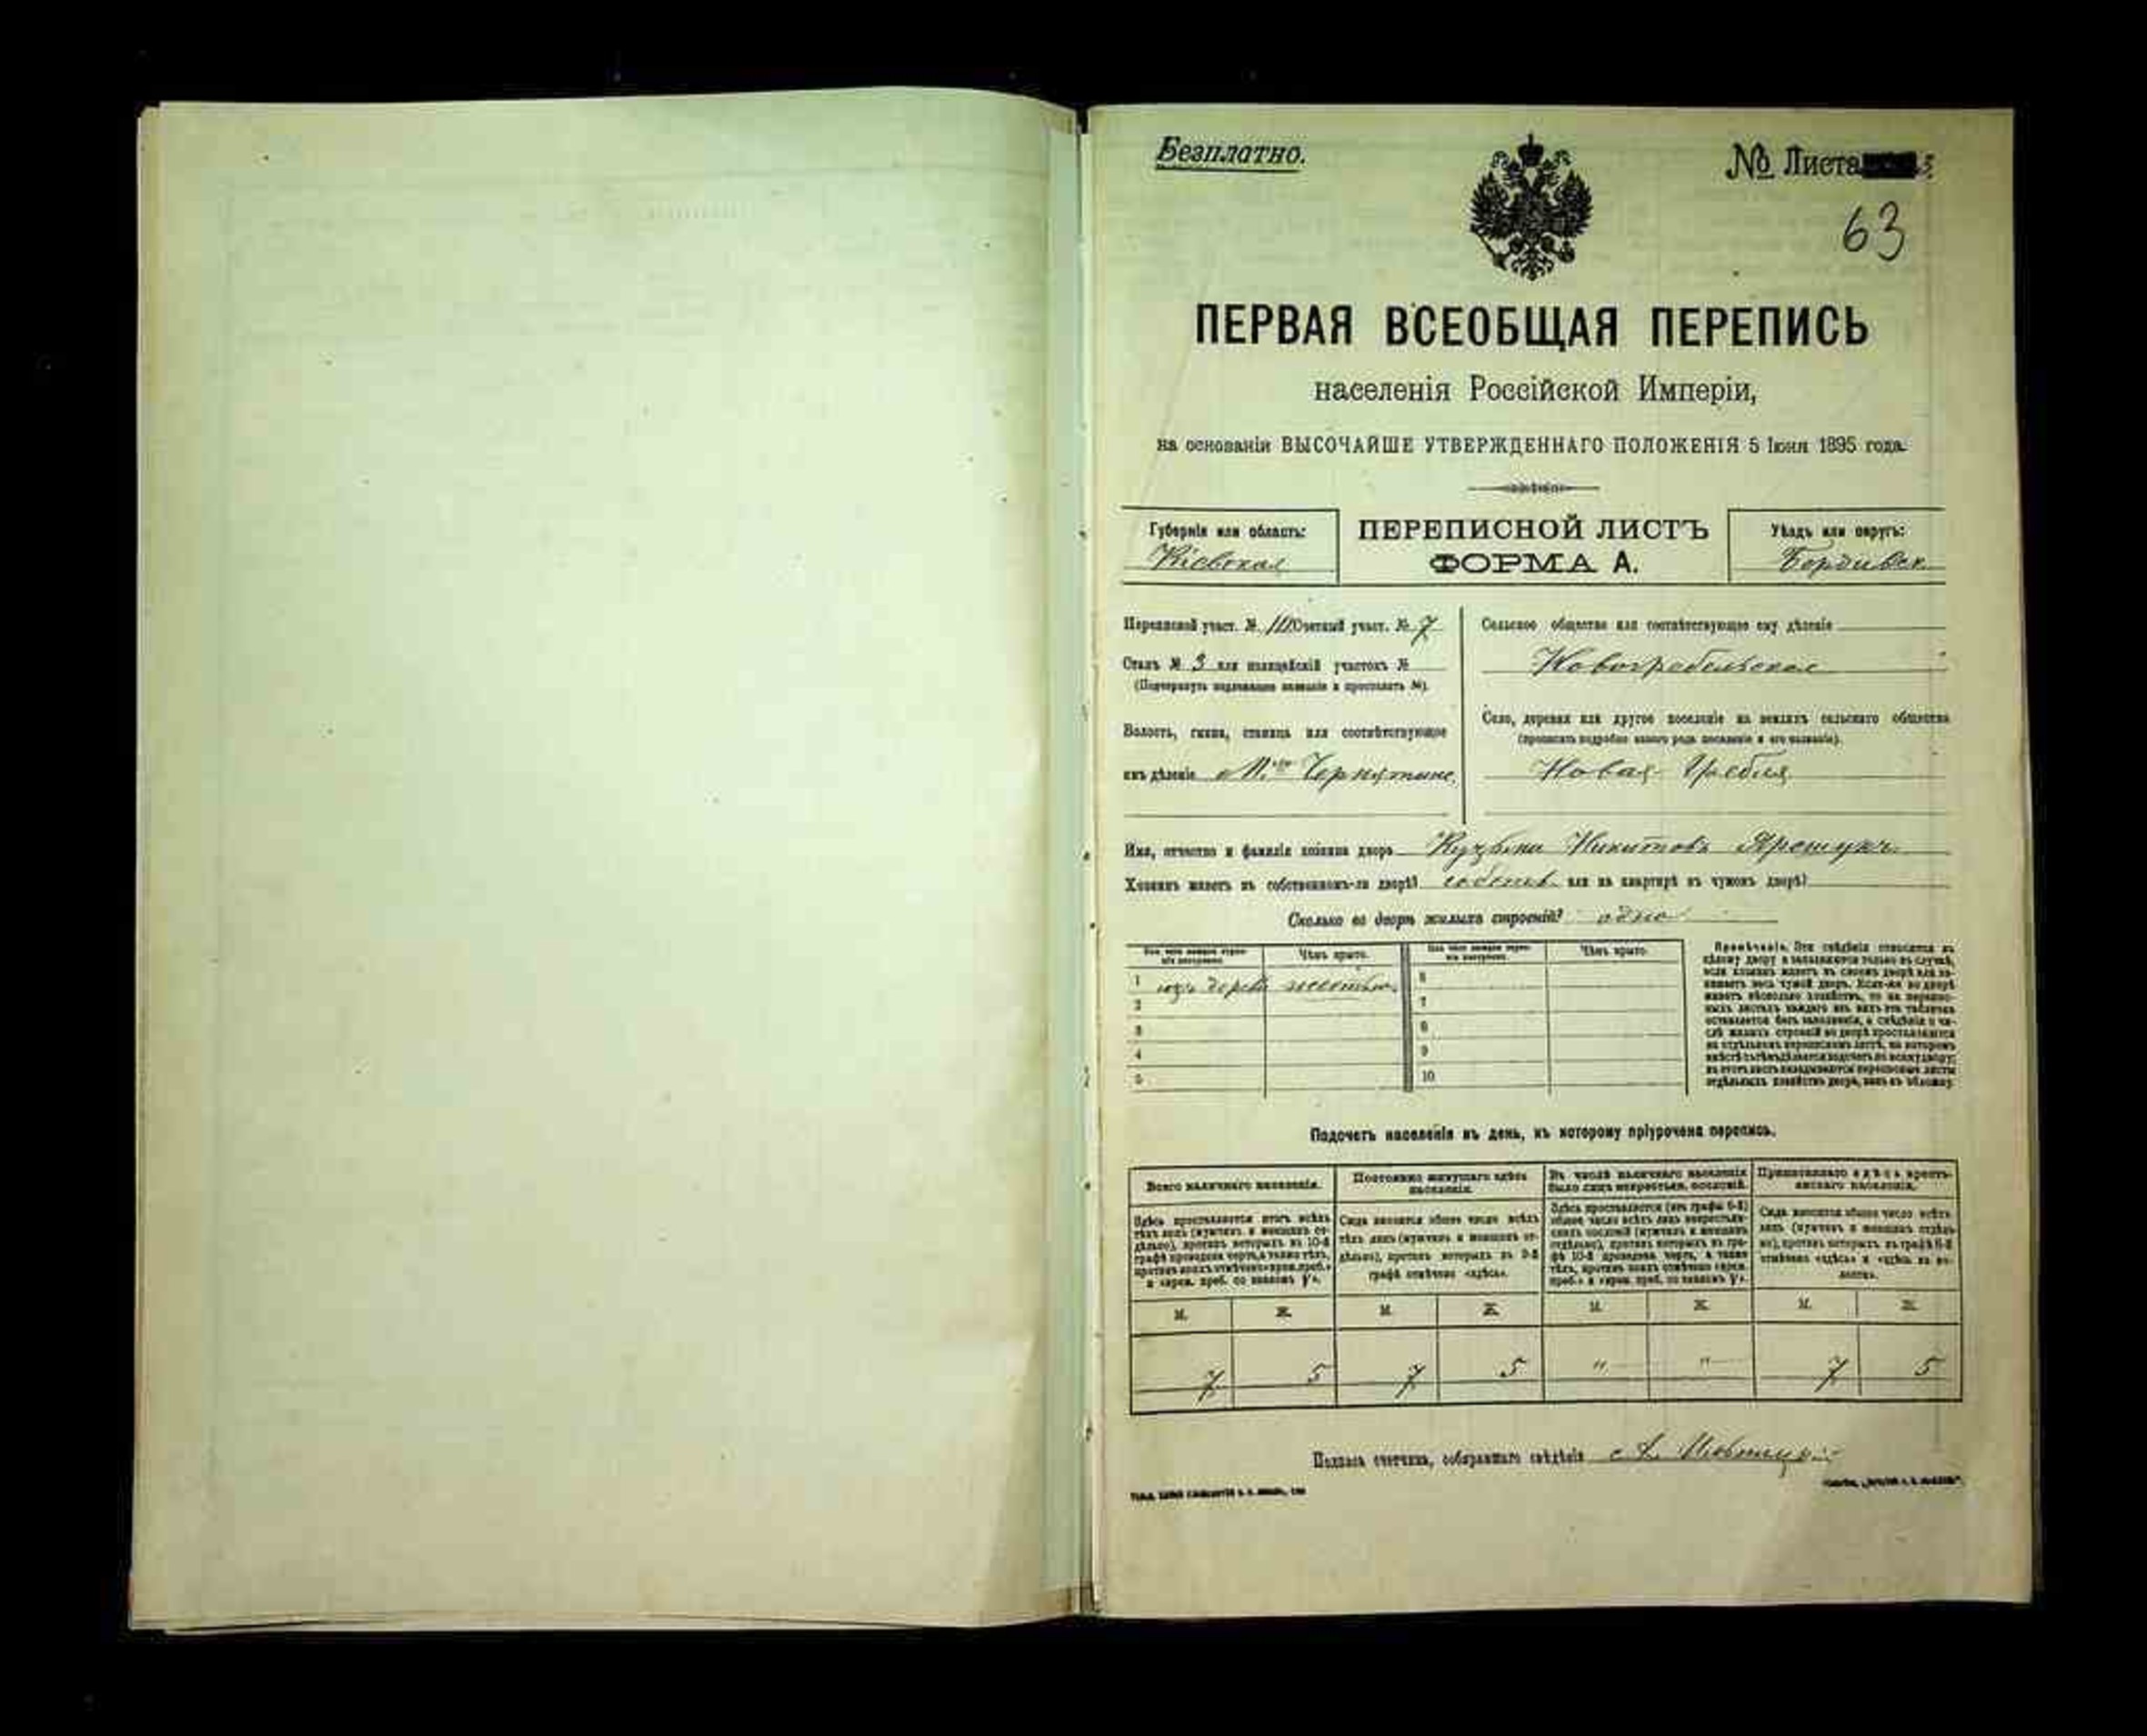 Безплатно.
№ Листа
63
ПЕРВАЯ ВСЕОБЩАЯ ПЕРЕПИСЬ
населенія Россійской Имперіи,
на основаніи ВЫСОЧАЙШЕ УТВЕРЖДЕННАГО ПОЛОЖЕНІЯ 5 Іюня 1895 года.
Губернія или область:
Кіевская
ПЕРЕПИСНОЙ ЛИСТЪ
ФОРМА А.
Уѣздъ или округъ:
Бердичев
Переписной участ. № III Счетный участ. № 7
Станъ № 3 или полицейскій участокъ №
(Подчеркнуть надлежащее названіе и проставить №).
Волость, гмина, станица или соотвѣтствующее
имъ дѣленіе
Сельское общество или соотвѣтствующее ему дѣленіе
Новогребельское
Село, деревня или другое поселеніе на земляхъ сельскаго общества
(прописать подробно какого рода поселеніе и его названіе).
Новая Гребля
Имя, отчество и фамилія хозяина двора Кузьма Никитовъ
Хозяинъ живетъ въ собственномъ-ли дворѣ? собствен. или на квартирѣ въ чужомъ дворѣ?
Сколько во дворѣ жилыхъ строеній? одно
Изъ чего каждое строеніе построено.
Чѣмъ крыто.
Изъ чего каждое строеніе построено.
Чѣмъ крыто.
1 изъ дерева
2
3
4
5
6
7
8
9
10
Примѣчаніе. Эти свѣдѣнія относятся къ
цѣлому двору и заполняются только въ случаѣ,
если хозяинъ живетъ въ своемъ дворѣ или занимаетъ
весь чужой дворъ. Если-же во дворѣ
живетъ нѣсколько хозяйствъ, то на переписныхъ
листахъ каждаго изъ нихъ эта табличка
оставляется безъ заполненія, а свѣдѣнія о числѣ
жилыхъ строеній во дворѣ проставляются
на отдѣльномъ переписномъ листѣ, на которомъ
вмѣстѣ съ тѣмъ дѣлается подсчетъ по всему двору;
въ этотъ листъ вкладываются переписные листы
отдѣльныхъ хозяйствъ двора, какъ въ обложку.
Подсчетъ населенія въ день, къ которому пріурочена перепись.
Всего наличнаго населенія.
Постоянно живущаго здѣсь населенія.
Въ числѣ наличнаго населенія было лицъ некрестьян. сословій.
Приписаннаго здѣсь крестьянскаго населенія.
Здѣсь проставляется итогъ всѣхъ
тѣхъ лицъ (мужчинъ и женщинъ отдѣльно),
противъ которыхъ въ 10-й
графѣ проведена черта, а также тѣхъ,
противъ коихъ отмѣчено «врем. преб.»
Сюда вносится общее число всѣхъ
тѣхъ лицъ (мужчинъ и женщинъ отдѣльно),
противъ которыхъ въ 9-й
графѣ отмѣчено «здѣсь».
Сюда вносится общее число всѣхъ
лицъ (мужчинъ и женщинъ отдѣльно),
противъ которыхъ въ графѣ 8-й
отмѣчено «здѣсь» и «здѣсь въ волости».
М. Ж. М. Ж. М. Ж. М. Ж.
7 5 7 5 " " 7 5
Подпись счетчика, собиравшаго свѣдѣнія